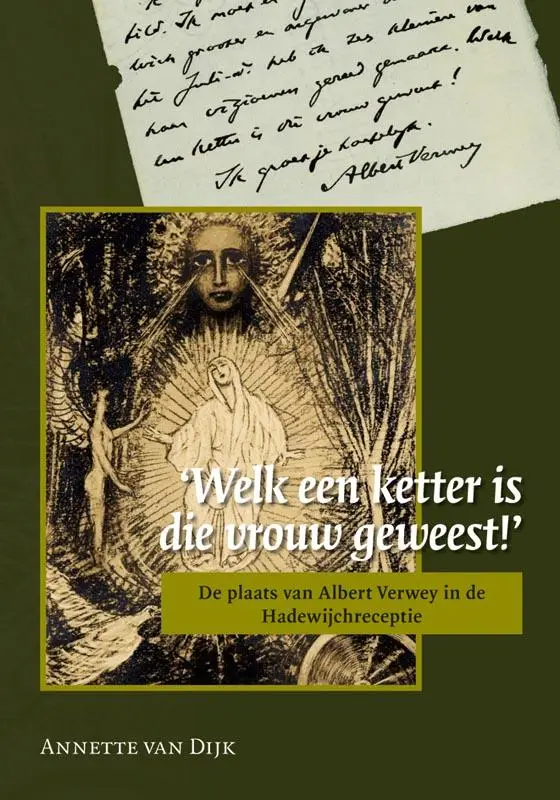 tild. Ik moet
grooter en
die Juli-nr. heb ik zes kleinere van
haar vizioenen gereed gemaakt. Welk
een ketter is die vrouw geweest!
Ik groet je hartelijk.
Albert Verwey
‘Welk een ketter is
die vrouw geweest!’
De plaats van Albert Verwey in de
Hadewijchreceptie
Annette van Dijk